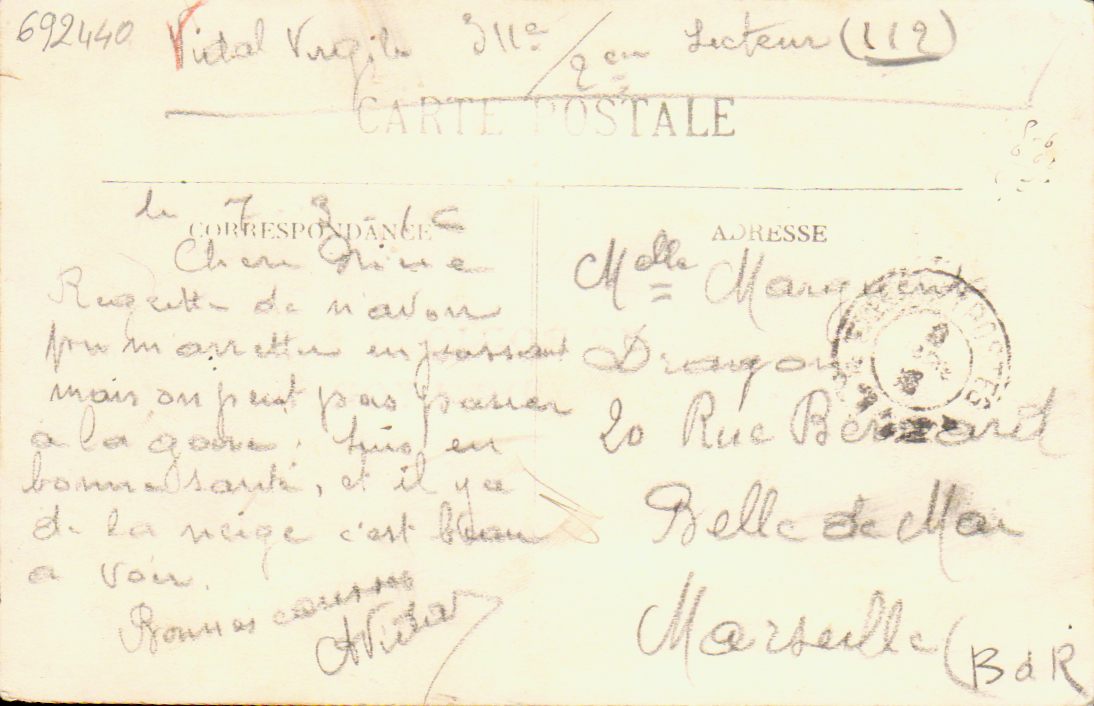 692440
Vidal Virgile 311e/2em Secteur (112)
CARTE POSTALE
le 7 3 16
CORRESPONDANCE
Chere
Regrette de n'avoir
pu m'arretter en passant
mais on peut pas passer
a la gare; suis en
bonne santé, et il y a
de la neige c'est beau
a voir.
Bonnes
Vidal
ADRESSE
Melle Marguerite
Dragon
20 Rue Bernard
Belle de Mai
Marseille (B d R